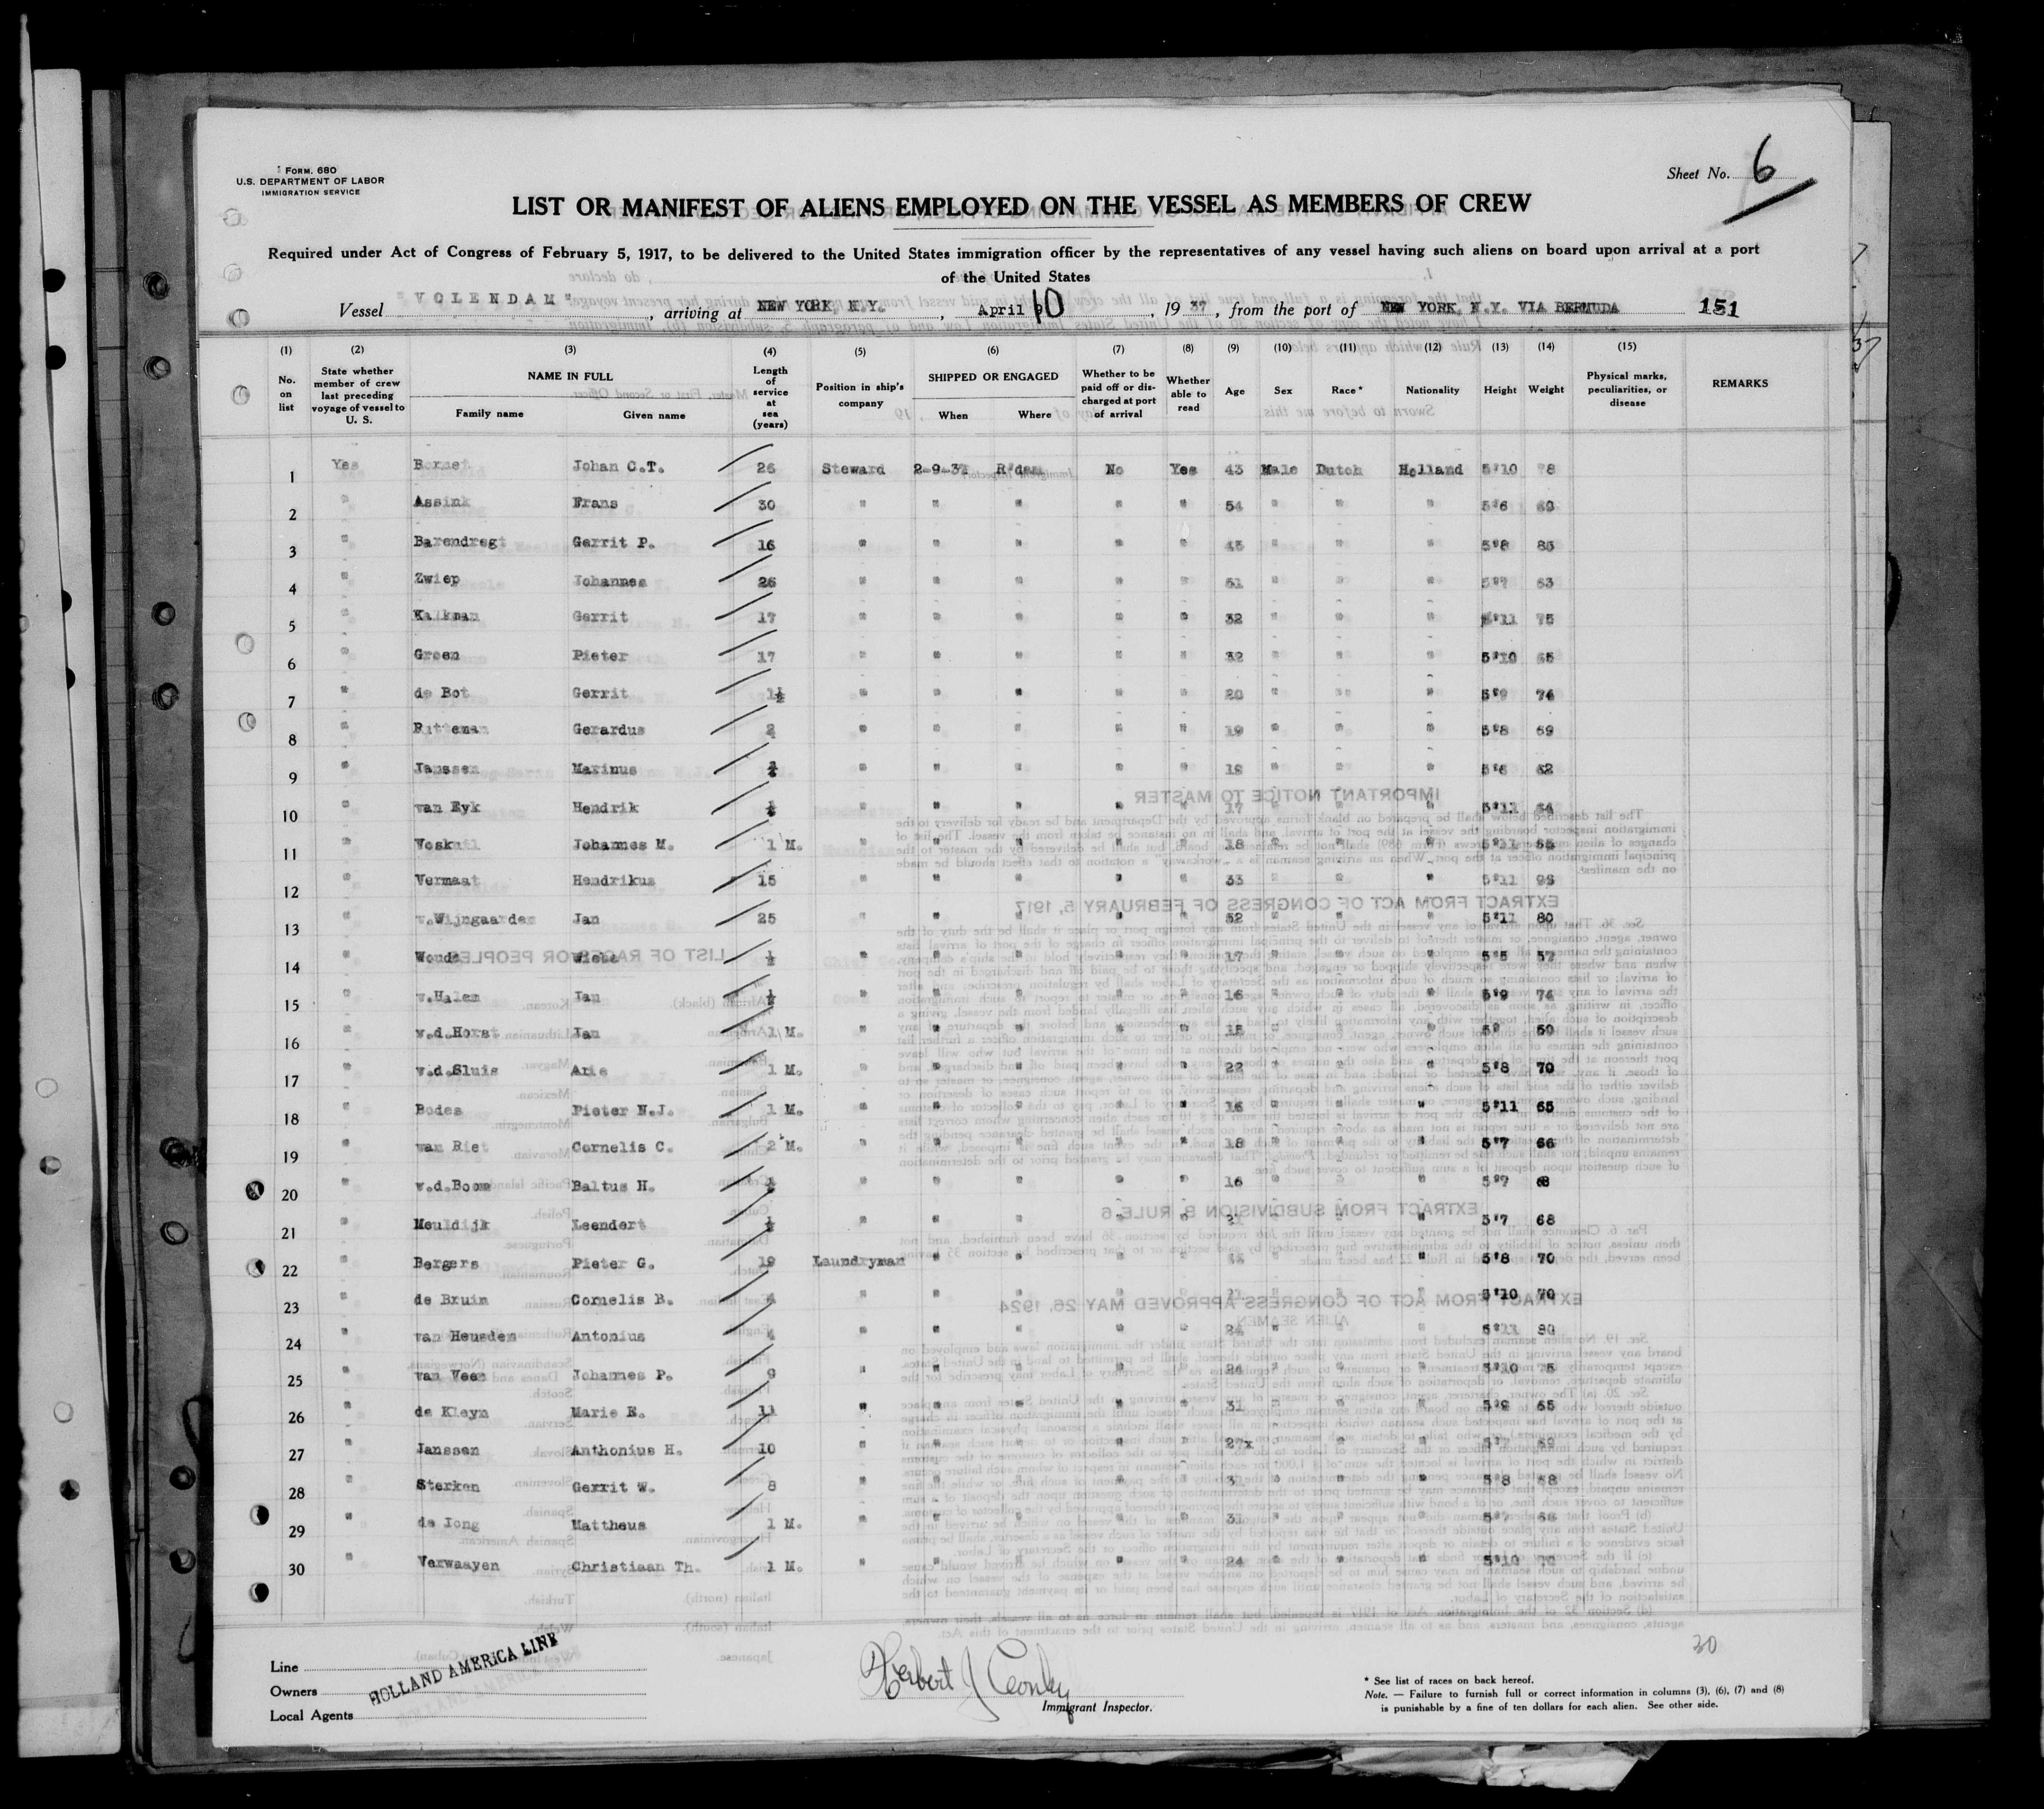 Form. 680
U.S. DEPARTMENT OF LABOR
IMMIGRATION SERVICE
Sheet No. 6
LIST OR MANIFEST OF ALIENS EMPLOYED ON THE VESSEL AS MEMBERS OF CREW
Required under Act of Congress of February 5, 1917, to be delivered to the United States immigration officer by the representatives of any vessel having such aliens on board upon arrival at a port
of the United States
Vessel "VOLENDAM", arriving at NEW YORK, N.Y., April 10, 1937, from the port of NEW YORK, N.Y. VIA BERMUDA 151
(1) (2) (3) (4) (5) (6) (7) (8) (9) (10) (11) (12) (13) (14) (15)
No. on list State whether member of crew last preceding voyage of vessel to U. S. NAME IN FULL Family name Given name Length of service at sea (years) Position in ship's company SHIPPED OR ENGAGED When Where Whether to be paid off or discharged at port of arrival Whether able to read Age Sex Race* Nationality Height Weight Physical marks, peculiarities, or disease REMARKS
1 Yes Johan C.T. 26 Steward 2-9-37 R'dam No Yes 43 Male Dutch Holland 5'10 78
2 " Assink Frans 30 " " " " " 54 " " " 5'6
3 " Barendregt Gerrit P. 16 " " " " " " " " 5'8 85
4 " Zwiep Johannes 26 " " " " " 51 " " " 5'7 63
5 " Kalkman Gerrit 17 " " " " " 32 " " " 5'11 75
6 " Groen Pieter 17 " " " " " 32 " " " 5'10 65
7 " de Bot Gerrit 1½ " " " " " 20 " " " 5'9 74
8 " Gerardus 2 " " " " " 19 " " " 5'8 69
9 " Janssen Marinus " " " " " 19 " " " 5'6 62
10 " van Eyk Hendrik ½ " " " " " 17 " " " 5'11 64
11 " Voskuil Johannes M. 1 M. " " " " " 18 " " " 5'11 65
12 " Vermaat Hendrikus 15 " " " " " 33 " " " 5'11
13 " v.Wijngaarden Jan 25 " " " " " 52 " " " 5'11 80
14 " Wouda ½ " " " " " 17 " " " 5'5 57
15 " v.Halen Jan ½ " " " " " 16 " " " 5'9 74
16 " v.d.Horst Jan 1 M. " " " " " 15 " " " 5' 50
17 " v.d.Sluis Arie 1 M. " " " " " 22 " " " 5'8 70
18 " Bodes Pieter N.J. 1 M. " " " " " 16 " " " 5'11 65
19 " van Riet Cornelis C. 2 M. " " " " " 18 " " " 5'7 66
20 " v.d.Boom Baltus H. ½ " " " " " 16 " " " 5'7 68
21 " Meuldijk Leendert ½ " " " " " " " " 5'7 68
22 " Bergers Pieter G. 19 Laundryman " " " " " " " 5'8 70
23 " de Bruin Cornelis B. " " " " " " " " 5'10 70
24 " van Heusden Antonius " " " " " 24 " " " 5'11 80
25 " van Veen Johannes P. 9 " " " " " 24 " " " 5'10 75
26 " de Kleyn Marie E. 11 " " " " " 31 " " " 5'9 65
27 " Janssen Anthonius H. 10 " " " " " 27x " " " 5'7
28 " Sterken Gerrit W. 8 " " " " " " " " 5'8 68
29 " de Jong Mattheus 1 M. " " " " " 31 " " " 5'7
30 " Verwaayen Christiaan Th. 1 M. " " " " " 24 " " " 5'10 70
30
Line
Owners
Local Agents
HOLLAND AMERICA LINE
Herbert J Conley
Immigrant Inspector.
* See list of races on back hereof.
Note. — Failure to furnish full or correct information in columns (3), (6), (7) and (8)
is punishable by a fine of ten dollars for each alien. See other side.